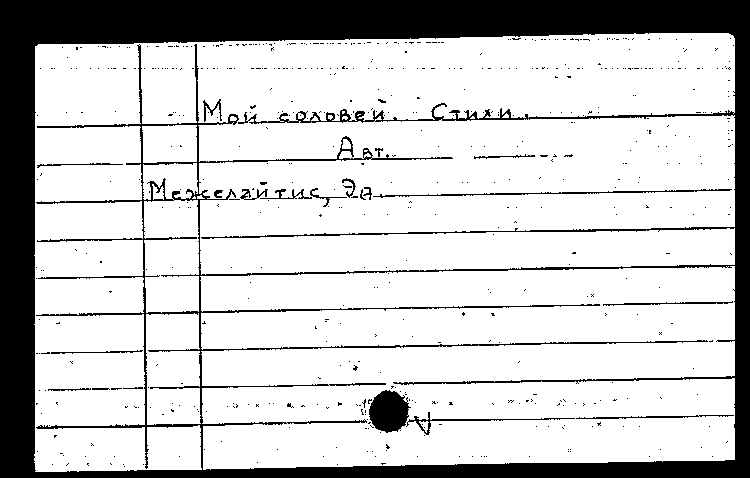 Мой соловей. Стихи.
Авт.
Межелайтис, Эд.